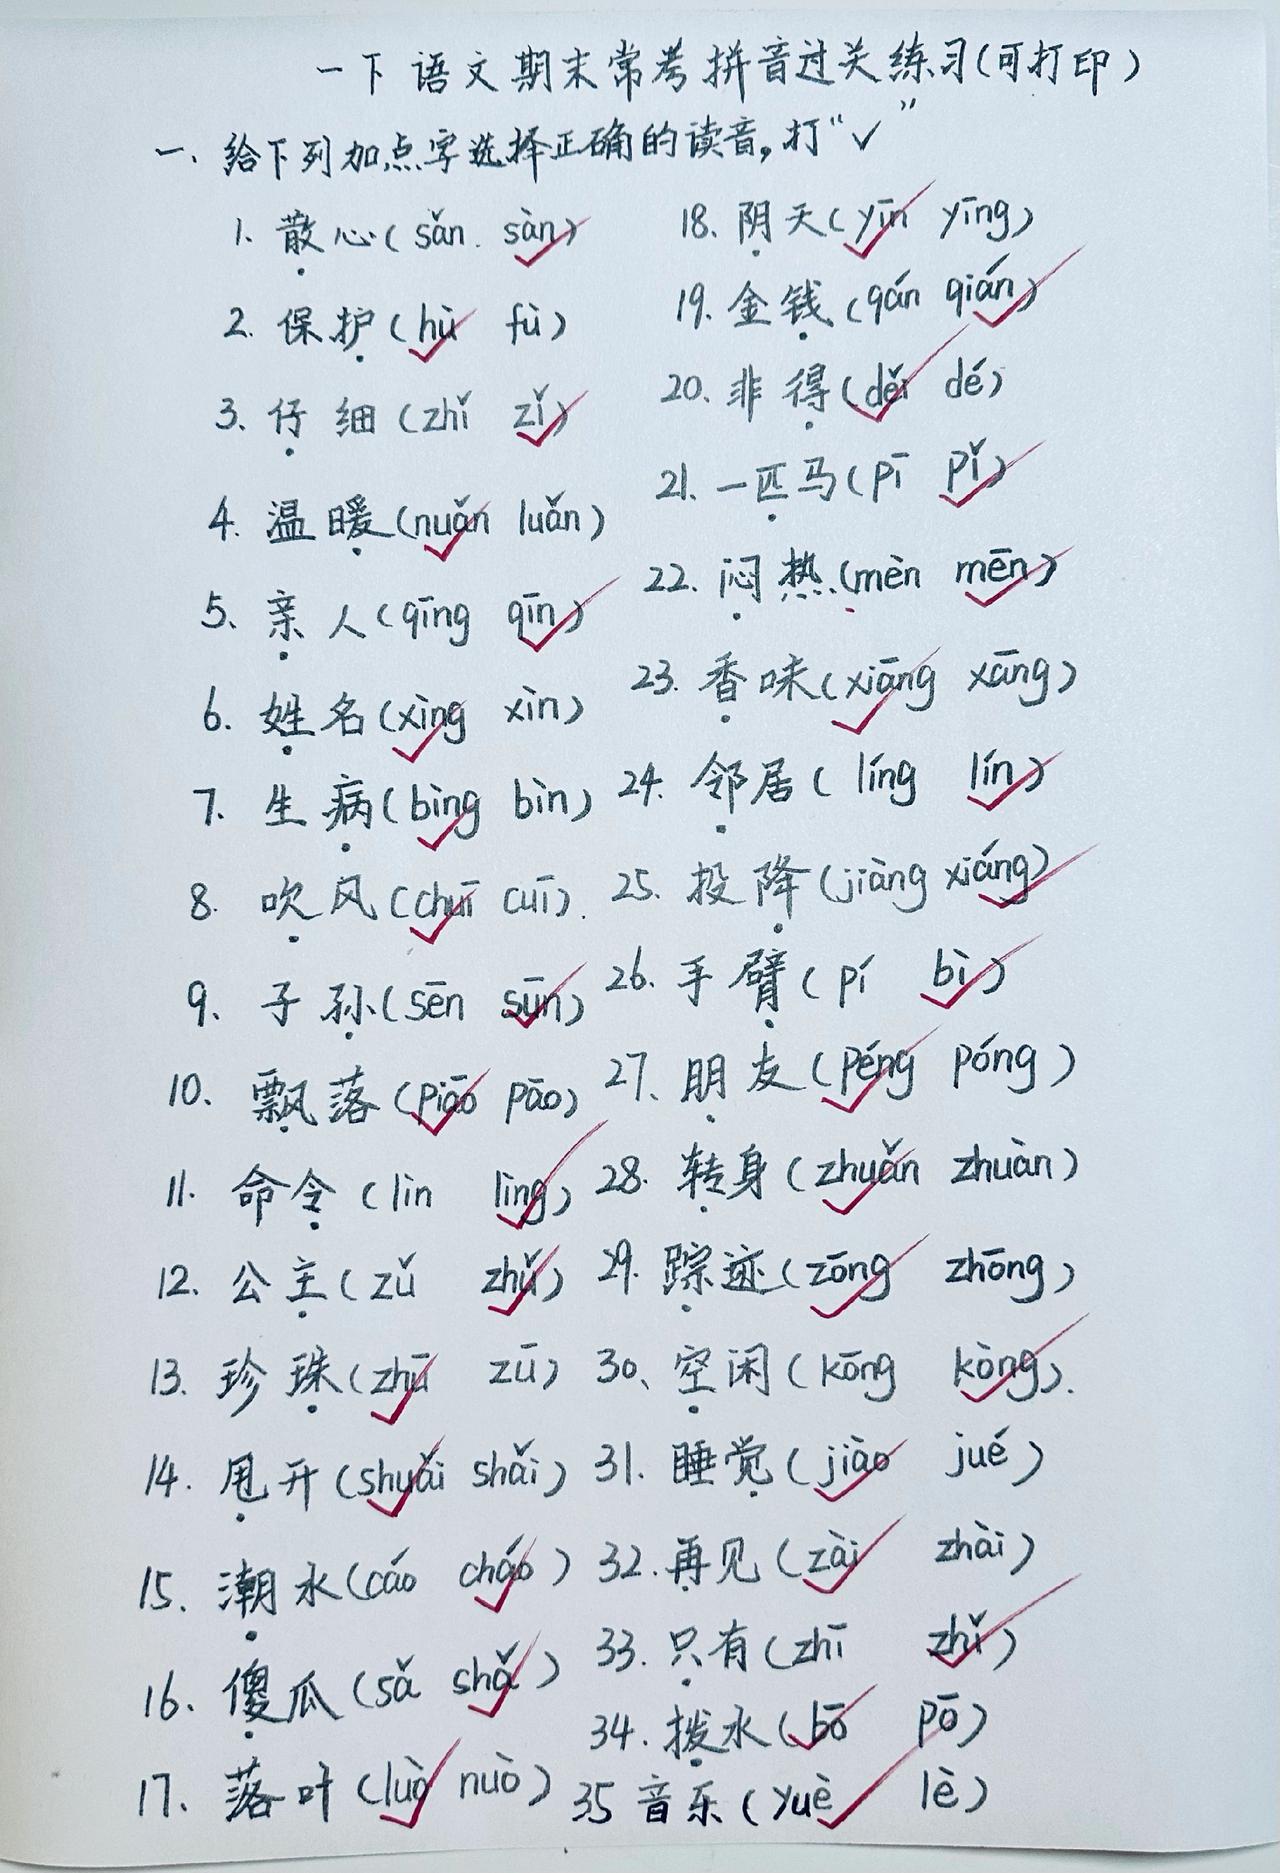 一下语文期末常考拼音过关练习(可打印)
一、给下列加点字选择正确的读音,打“✓”
1. 散心(sǎn sàn)
2. 保护(hù fù)
3. 仔细(zhǐ zǐ)
4. 温暖(nuǎn luǎn)
5. 亲人(qīng qīn)
6. 姓名(xìng xìn)
7. 生病(bìng bìn)
8. 吹风(chuī cuī).
9. 子孙(sēn sūn)
10. 飘落(piāo pāo)
11. 命令(lìn lìng)
12. 公主(zǔ zhǔ)
13. 珍珠(zhū zū)
14. 甩开(shuǎi shǎi)
15. 潮水(cáo cháo)
16. 傻瓜(sǎ shǎ)
17. 落叶(luò nuò)
18. 阴天(yīn yīng)
19. 金钱(qán qián)
20. 非得(děi dé)
21. 一匹马(pī pǐ)
22. 闷热(mèn mēn)
23. 香味(xiāng xāng)
24. 邻居(líng lín)
25. 投降(jiàng xiáng)
26. 手臂(pí bì)
27. 朋友(péng póng)
28. 转身(zhuǎn zhuàn)
29. 踪迹(zōng zhōng)
30、空闲(kōng kòng).
31. 睡觉(jiào jué)
32. 再见(zài zhài)
33. 只有(zhī zhǐ)
34. 拨水(bō pō)
35 音乐(yuè lè)